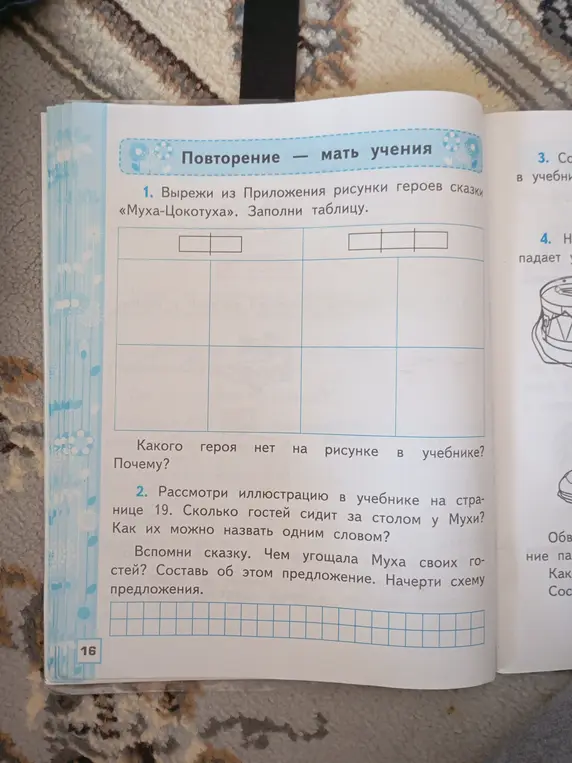 Повторение — мать учения
1. Вырежи из Приложения рисунки героев сказки
«Муха-Цокотуха». Заполни таблицу.
Какого героя нет на рисунке в учебнике?
Почему?
2. Рассмотри иллюстрацию в учебнике на стра-
нице 19. Сколько гостей сидит за столом у Мухи?
Как их можно назвать одним словом?
Вспомни сказку. Чем угощала Муха своих го-
стей? Составь об этом предложение. Начерти схему
предложения.
16
3.
в
4.
падает
ние